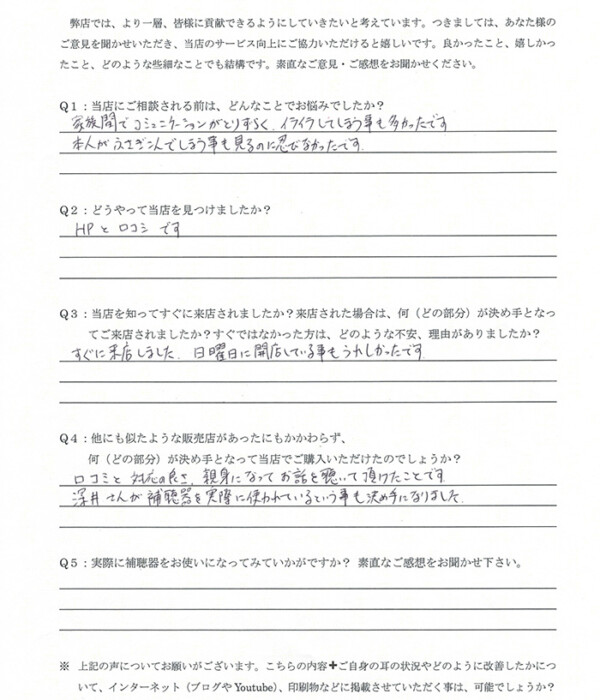 弊店では、より一層、皆様に貢献できるようにしていきたいと考えています。つきましては、あなた様の
ご意見を聞かせいただき、当店のサービス向上にご協力いただけると嬉しいです。良かったこと、嬉しかっ
たこと、どのような些細なことでも結構です。素直なご意見・ご感想をお聞かせください。
Q1：当店にご相談される前は、どんなことでお悩みでしたか？
家族間でコミュニケーションがとりずらく、イライラしてしまう事も多かったです
本人がふさぎこんでしまう事も見るのに忍びなかったです.
Q2：どうやって当店を見つけましたか？
HPと口コミです
Q3：当店を知ってすぐに来店されましたか？来店された場合は、何（どの部分）が決め手となっ
てご来店されましたか？すぐではなかった方は、どのような不安、理由がありましたか？
すぐに来店しました. 日曜日に開店している事もうれしかったです
Q4：他にも似たような販売店があったにもかかわらず、
何（どの部分）が決め手となって当店でご購入いただけたのでしょうか？
口コミと対応の良さ、親身になってお話を聴いて頂けたことです.
深井さんが補聴器を実際に使われているという事も決め手になりました.
Q5：実際に補聴器をお使いになってみていかがですか？ 素直なご感想をお聞かせ下さい。
※ 上記の声についてお願いがございます。こちらの内容✚ご自身の耳の状況やどのように改善したかにつ
いて、インターネット（ブログや Youtube）、印刷物などに掲載させていただく事は、可能でしょうか？